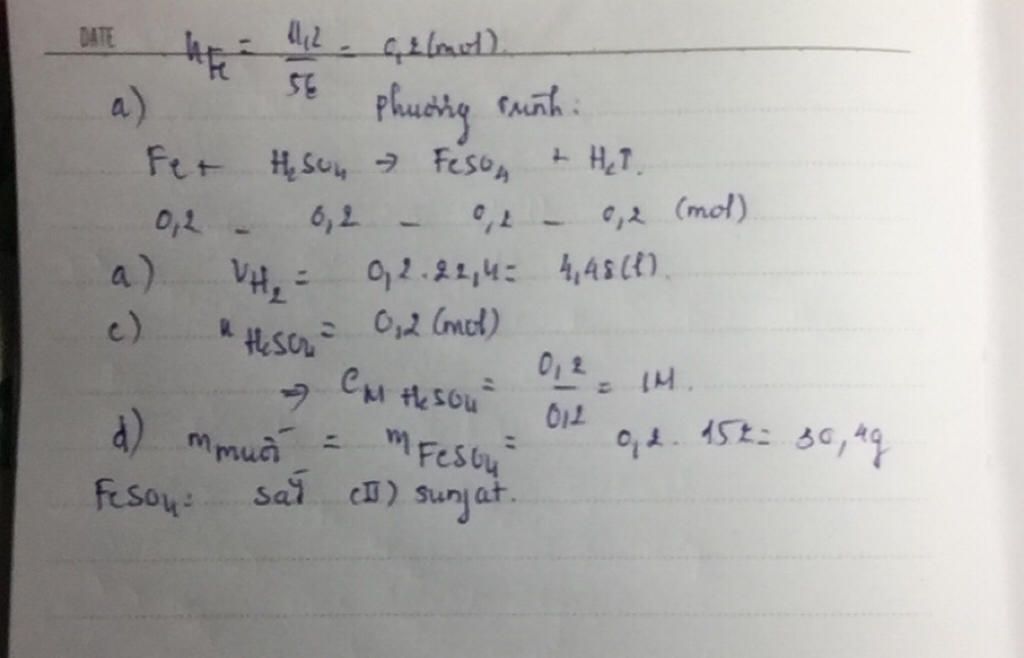 DATE
n Fe = 11,2/56 = 0,2 (mol).
a) phương trình:
Fe + H₂SO₄ → FeSO₄ + H₂↑.
0,2 - 0,2 - 0,2 - 0,2 (mol)
a) V H₂ = 0,2 . 22,4 = 4,48 (l).
c) n H₂SO₄ = 0,2 (mol)
⇒ C M H₂SO₄ = 0,2/0,2 = 1M.
d) m muối = m FeSO₄ = 0,2 . 152 = 30,4g
FeSO₄: sắt (II) sunfat.